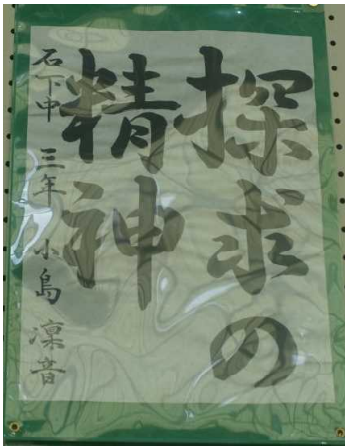 探求の
精神
石下中 三年 小島 凜音